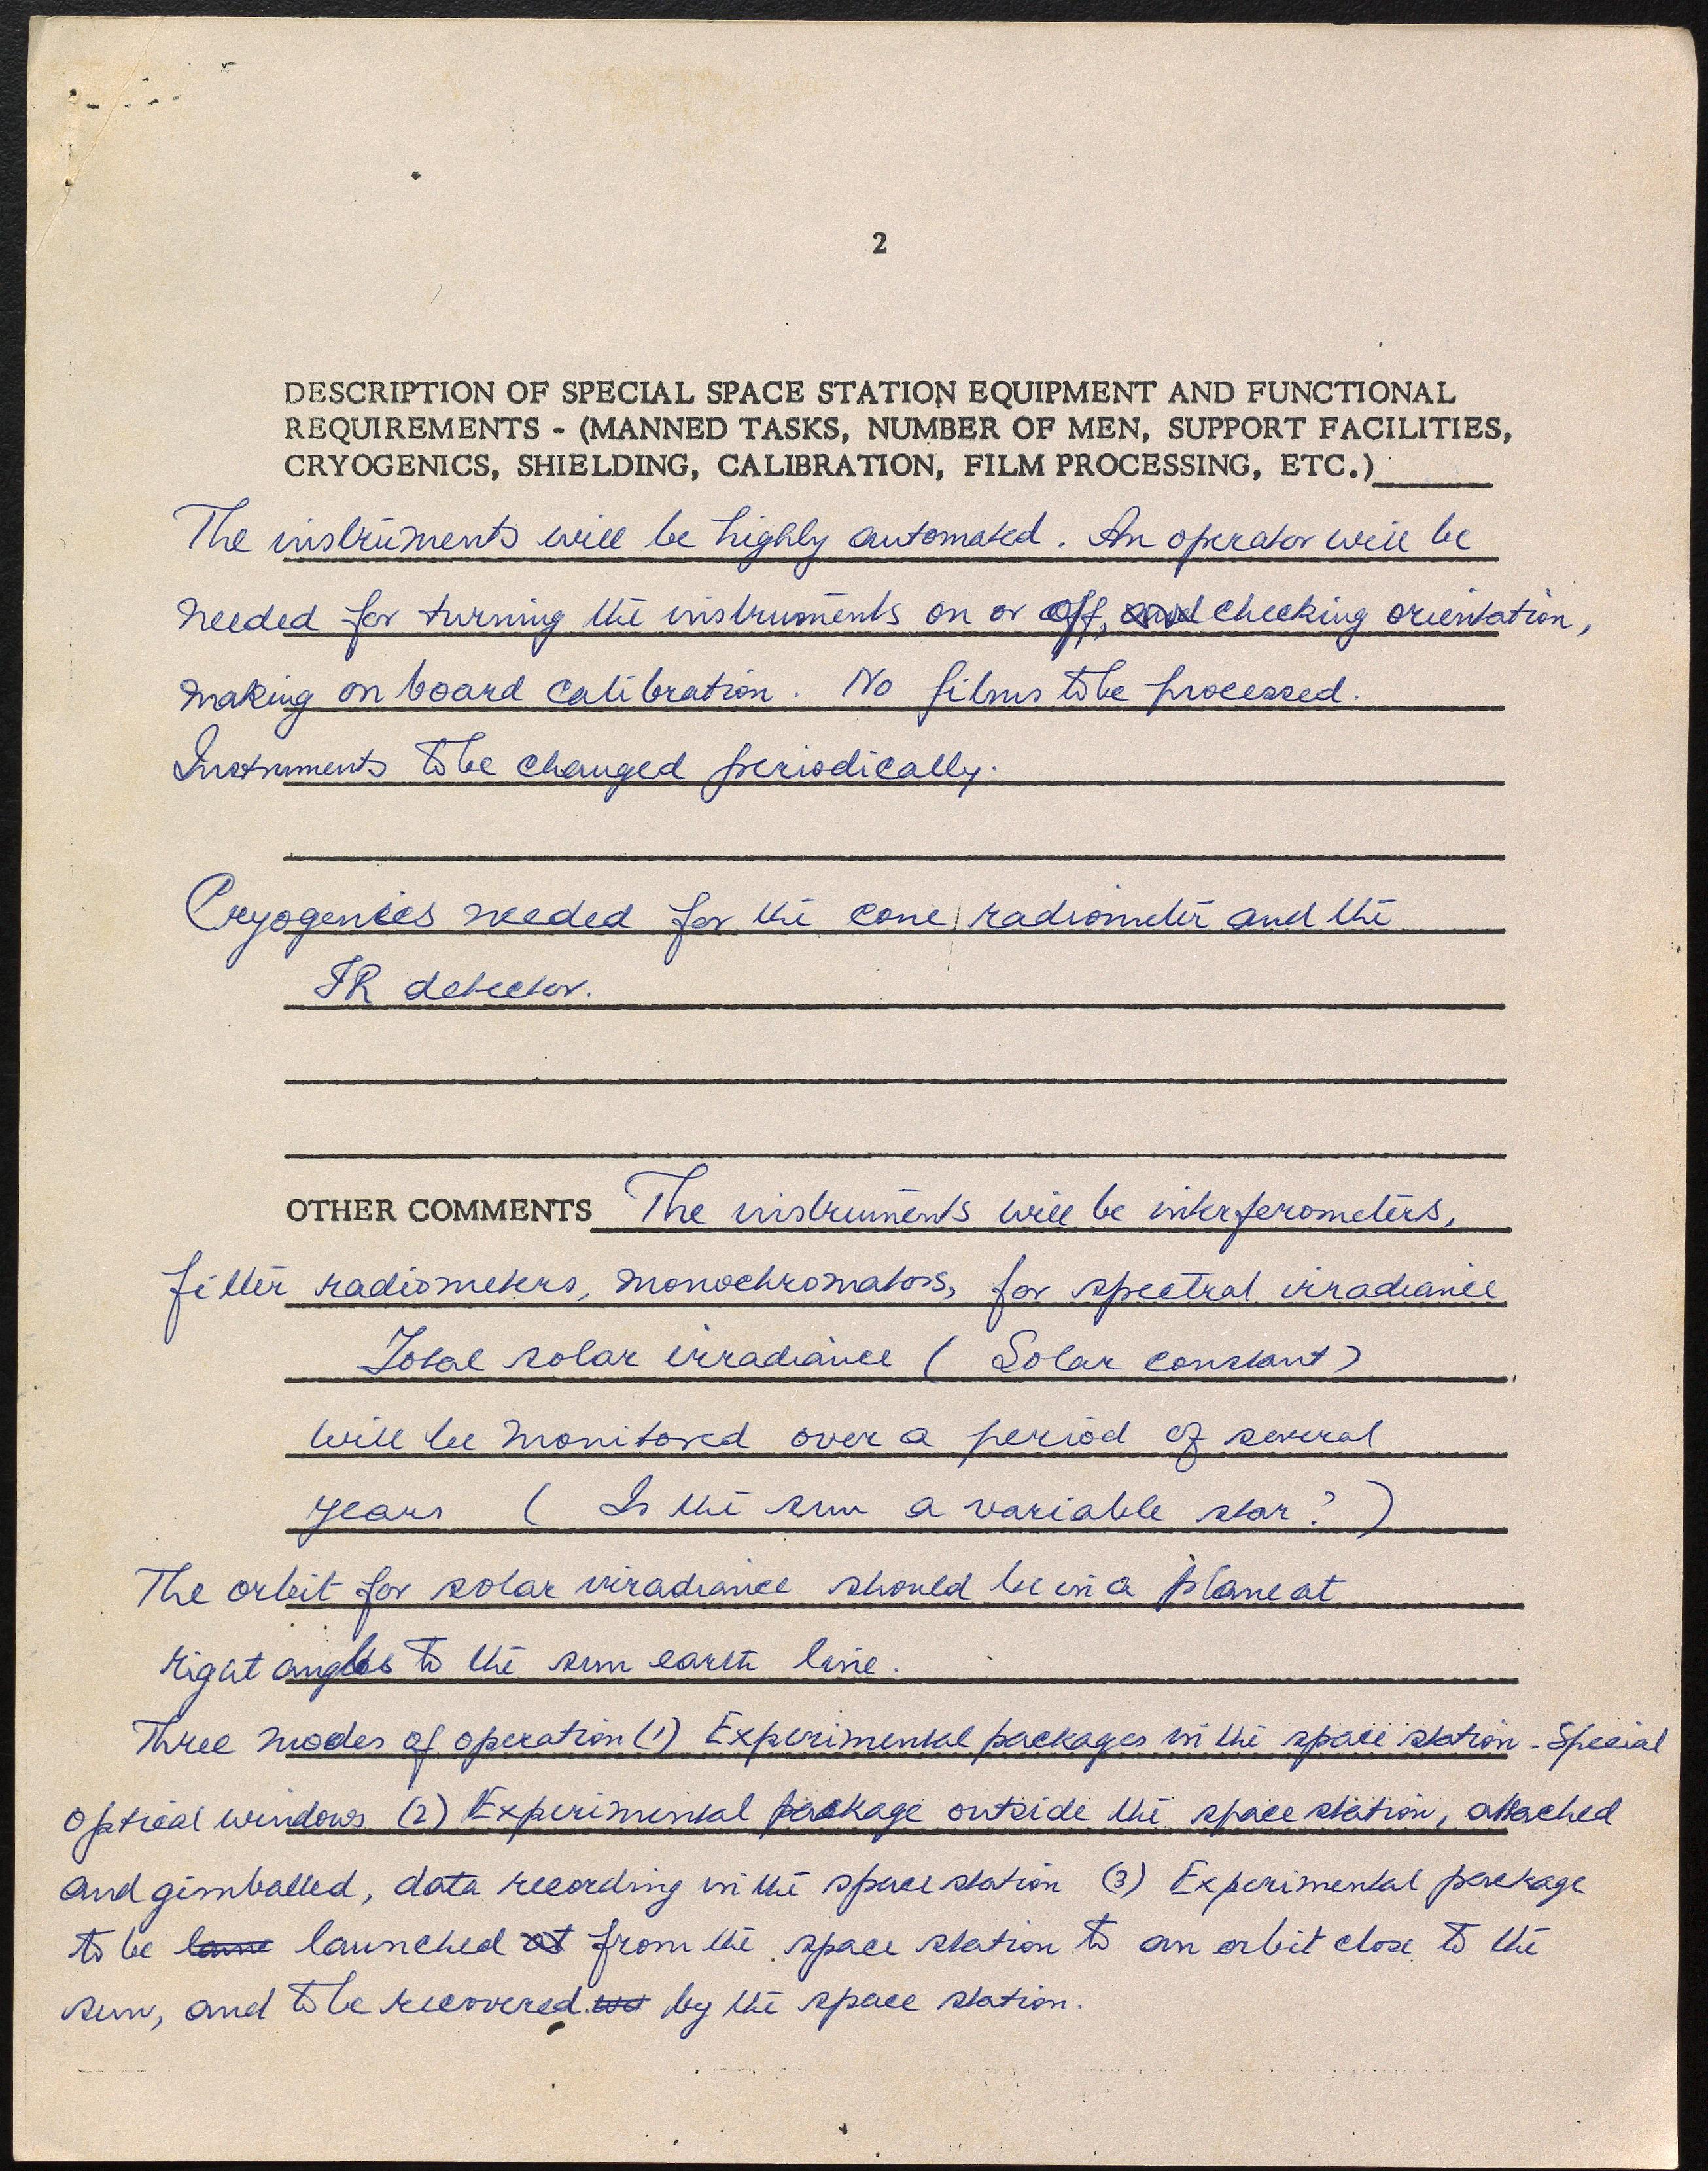 2
DESCRIPTION OF SPECIAL SPACE STATION EQUIPMENT AND FUNCTIONAL
REQUIREMENTS - (MANNED TASKS, NUMBER OF MEN, SUPPORT FACILITIES,
CRYOGENICS, SHIELDING, CALIBRATION, FILM PROCESSING, ETC.)
The instruments will be highly automated. An operator will be
needed for turning the instruments on or off, and checking orientation,
making on board calibration. No films to be processed.
Instruments to be changed periodically.
Cryogenics needed for the cone radiometer and the
IR detector.
OTHER COMMENTS The instruments will be interferometers,
filter radiometers, monochromators, for spectral irradiance
Total solar irradiance ( Solar constant )
will be monitored over a period of several
years ( Is the sun a variable star? )
The orbit for solar irradiance should be in a plane at
right angles to the sun earth line.
Three modes of operation (1) Experimental packages in the space station. Special
optical windows (2) Experimental package outside the space station, attached
and gimballed, data recording in the space station (3) Experimental package
to be laune launched at from the space station to an orbit close to the
sun, and to be recovered by the space station.